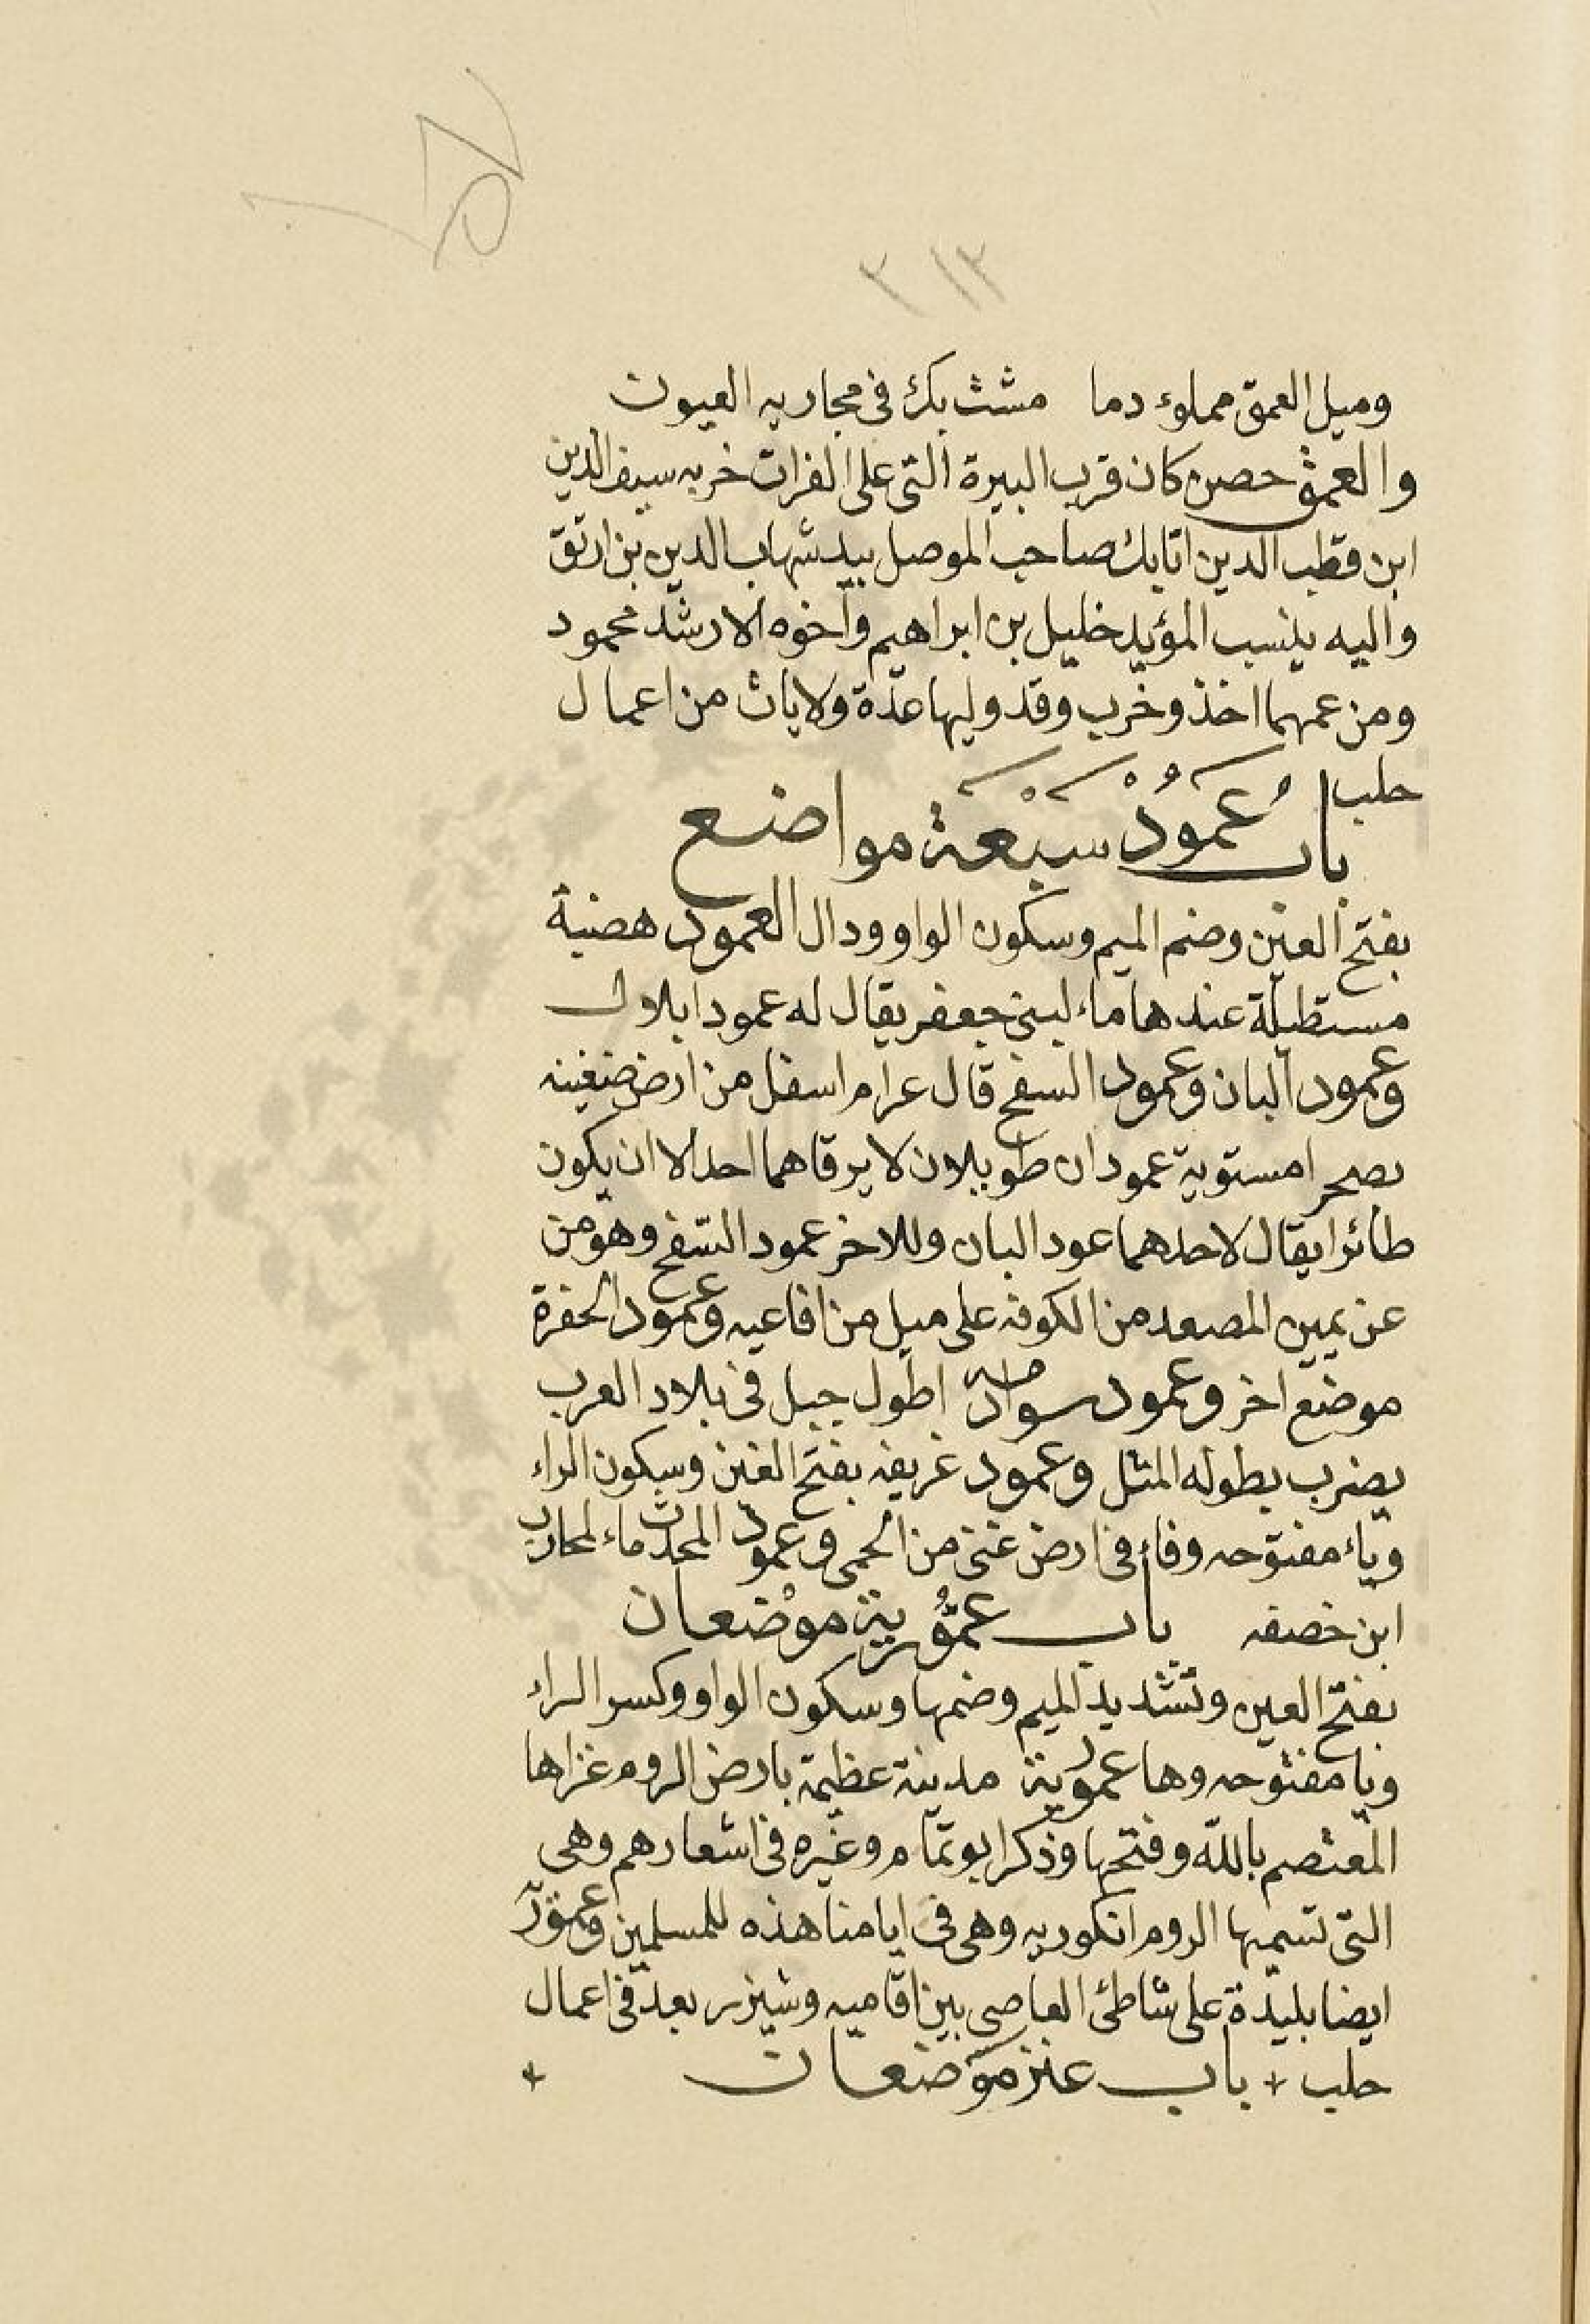 ٣١٣
وميل العمق مملوء دما مشتبك في مجاريه العيون
والعمق حصن كان قرب البيرة التي على الفرات خربه سيف الدين
ابن قطب الدين اتابك صاحب الموصل بيد شهاب الدين بن ارتق
واليه ينسب المؤيد خليل بن ابراهيم وأخوه الارشد محمود
ومن عمهما اخذ وخرب وقد وليها عدّة ولايات من اعمال
حلب
باب عَمُودْ سَبْعَة مواضع
بفتح العين وضم الميم وسكون الواو ودال العمود هضبة
مستطيلة عندها ماء لبني جعفر يقال له عمود ابلاول
وعمود البان وعمود السفح قال عرام اسفل من ارض ضفينه
بصحرا مستوية عمودان طويلان لا يرقاهما احد الا ان يكون
طائرا يقال لاحدهما عود البان وللاخر عمود السّفح وهو من
عن يمين المصعد من الكوفه على ميل من افاعيه وعمود الحفرة
موضع اخر وعمود سوادمه اطول جبل في بلاد العرب
يضرب بطوله المثل وعمود غريفه بفتح الغين وسكون الراء
وياء مفتوحه وفاء في ارض غنى من الحمى وعمود المحدث ماء لمحارب
ابن خصفه باب عمّورية موضعان
بفتح العين وتشديد الميم وضمها وسكون الواو وكسر الراء
ويا مفتوحه وها عمورية مدينة عظيمة بارض الروم غزاها
المعتصم بالله وفتحها وذكر ابو تمّام وغيره في اشعارهم وهي
التي تسميها الروم انكوريه وهي في ايامنا هذه للمسلمين وعمورّ
ايضا بليدة على شاطئ العاصي بين افاميه وشيزر بعد في اعمال
حلب باب عنز موضعان